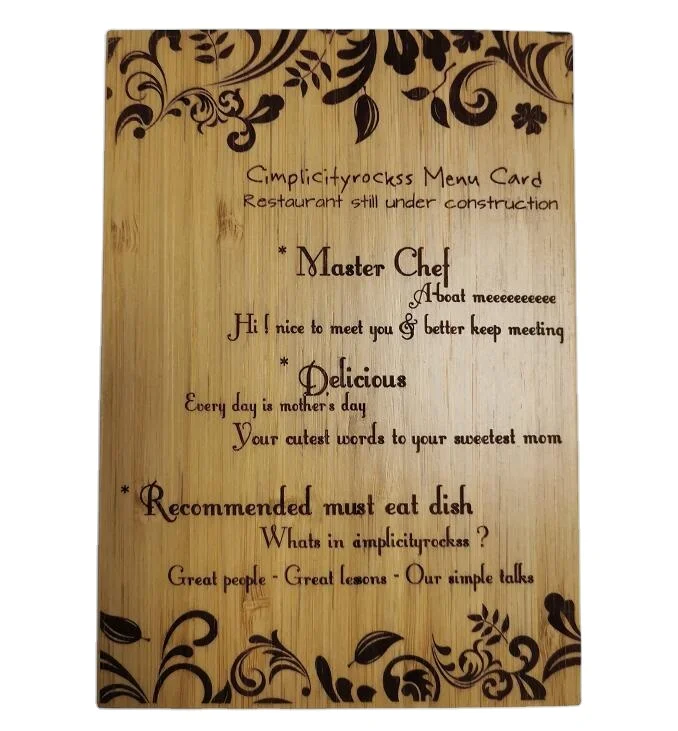 Cimplicityrockss Menu Card
Restaurant still under construction
* Master Chef
A-boat meeeeeeeeee
Hi ! nice to meet you & better keep meeting
* Delicious
Every day is mother's day
Your cutest words to your sweetest mom
* Recommended must eat dish
Whats in cimplicityrockss ?
Great people - Great lessons - Our simple talks